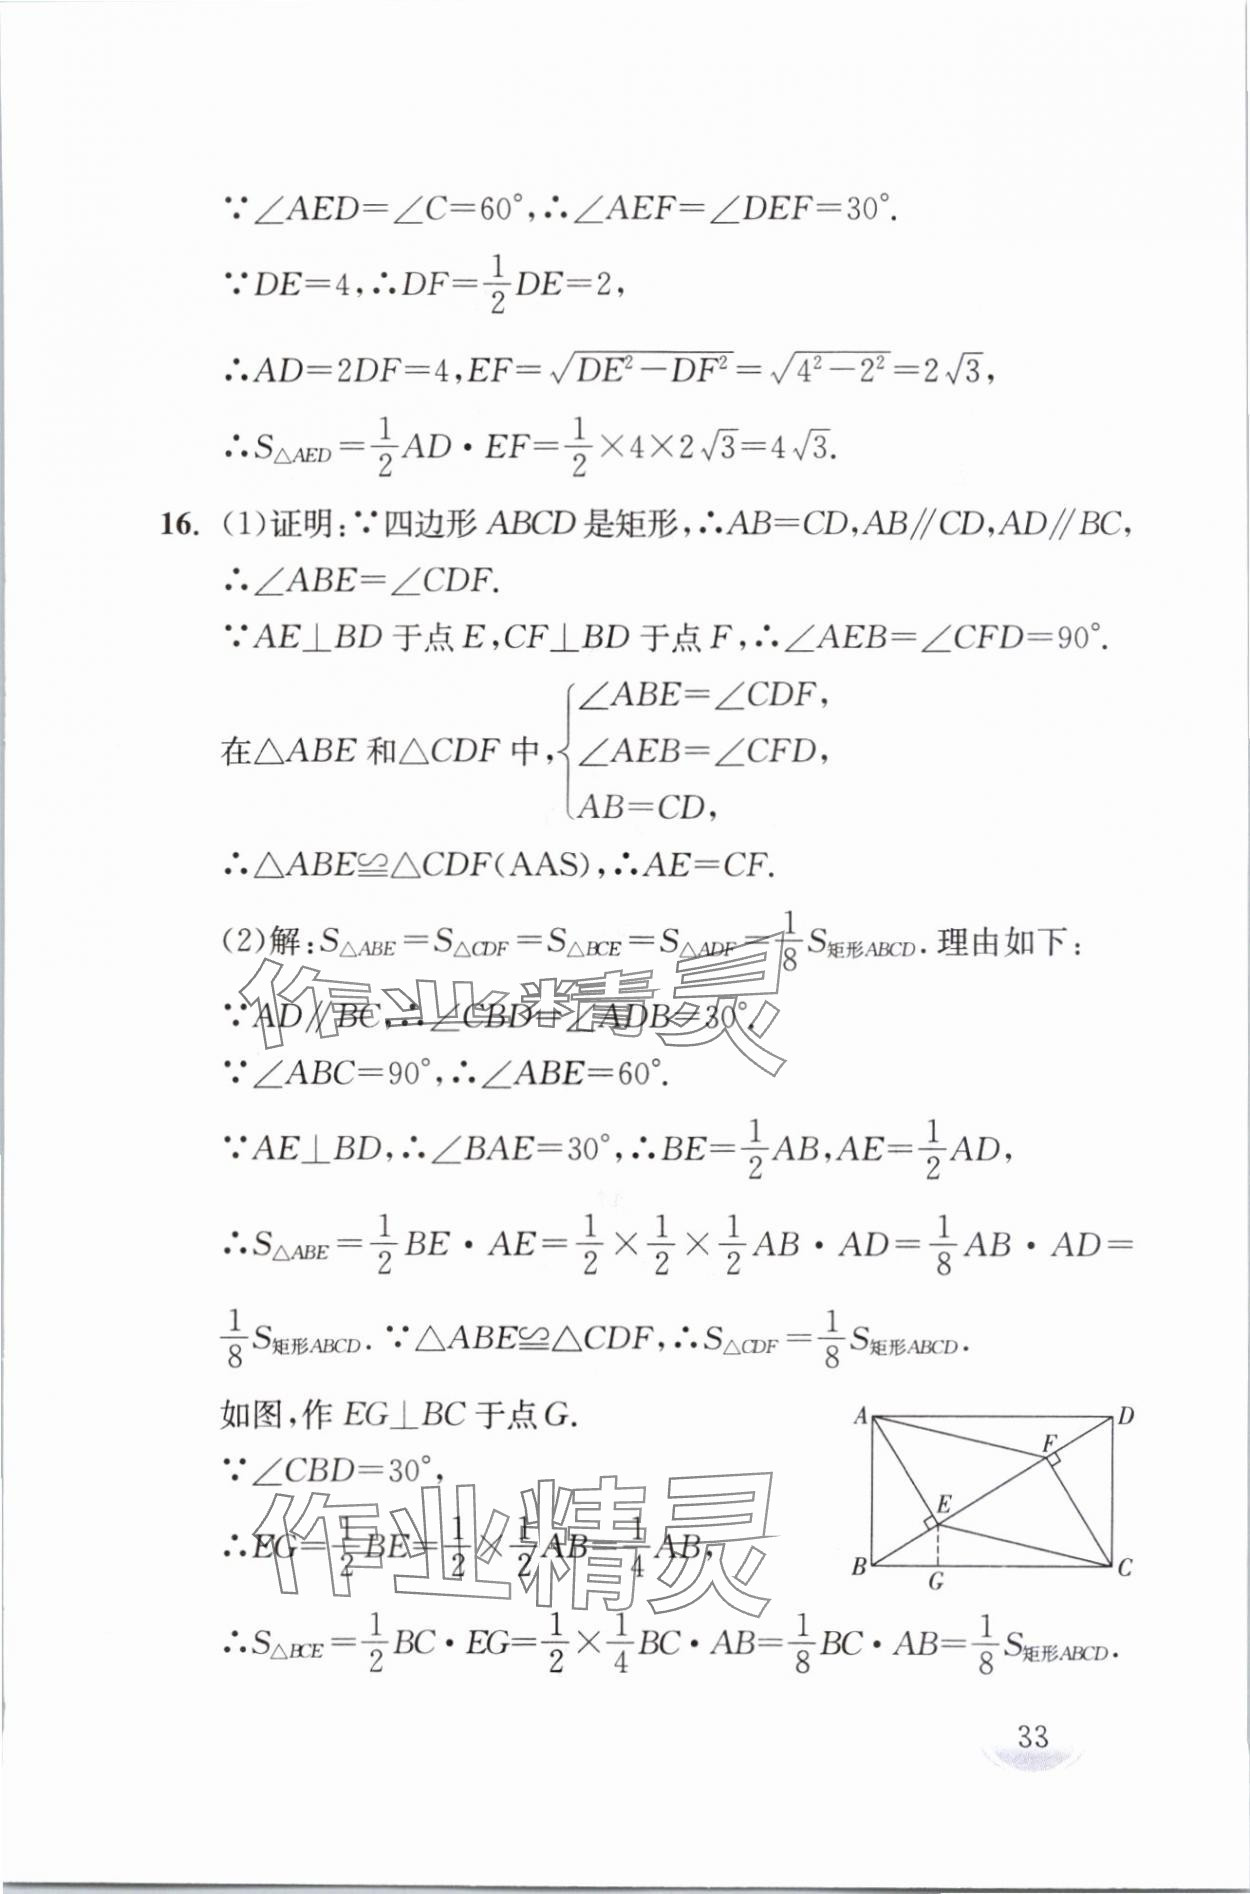 ∵∠AED=∠C=60°,∴∠AEF=∠DEF=30°.
∵DE=4,∴DF=1/2DE=2,
∴AD=2DF=4,EF=√(DE²-DF²)=√(4²-2²)=2√3,
∴S△AED=1/2AD·EF=1/2×4×2√3=4√3.
16. (1)证明:∵四边形ABCD是矩形,∴AB=CD,AB∥CD,AD∥BC,
∴∠ABE=∠CDF.
∵AE⊥BD于点E,CF⊥BD于点F,∴∠AEB=∠CFD=90°.
在△ABE和△CDF中,{∠ABE=∠CDF,
∠AEB=∠CFD,
AB=CD,
∴△ABE≌△CDF(AAS),∴AE=CF.
(2)解:S△ABE=S△CDF=S△BCE=S△ADF=1/8S矩形ABCD.理由如下:
∵AD∥BC,∴∠CBD=∠ADB=30°.
∵∠ABC=90°,∴∠ABE=60°.
∵AE⊥BD,∴∠BAE=30°,∴BE=1/2AB,AE=1/2AD,
∴S△ABE=1/2BE·AE=1/2×1/2×1/2AB·AD=1/8AB·AD=
1/8S矩形ABCD.∵△ABE≌△CDF,∴S△CDF=1/8S矩形ABCD.
如图,作EG⊥BC于点G.
∵∠CBD=30°,
∴EG=1/2BE=1/2×1/2AB=1/4AB,
∴S△BCE=1/2BC·EG=1/2×1/4BC·AB=1/8BC·AB=1/8S矩形ABCD.
A
D
F
E
B
G
C
33
作业精灵
作业精灵